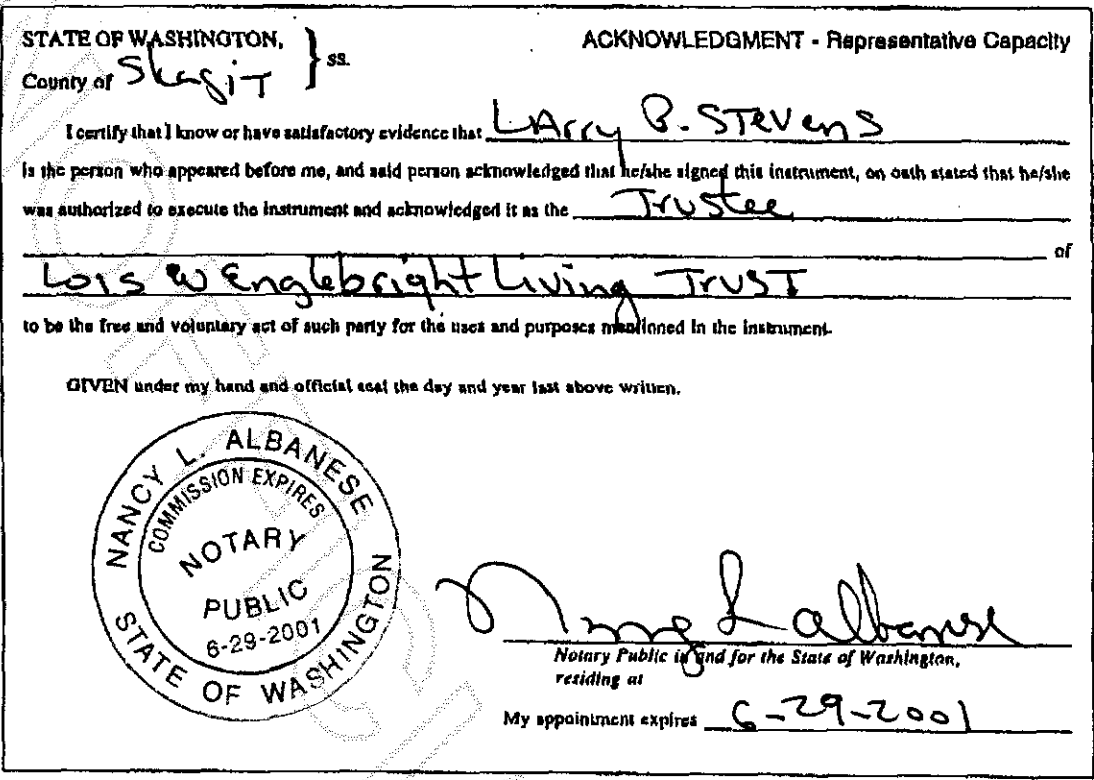 STATE OF WASHINGTON, } ss.
ACKNOWLEDGMENT - Representative Capacity
County of Skagit
I certify that I know or have satisfactory evidence that Larry B. Stevens
is the person who appeared before me, and said person acknowledged that he/she signed this instrument, on oath stated that he/she
was authorized to execute the instrument and acknowledged it as the Trustee
of
Lois W Englebright Living Trust
to be the free and voluntary act of such party for the uses and purposes mentioned in the instrument.
GIVEN under my hand and official seal the day and year last above written.
NANCY L. ALBANESE
COMMISSION EXPIRES
NOTARY
PUBLIC
6-29-2001
STATE OF WASHINGTON
Nancy L Albanese
Notary Public in and for the State of Washington,
residing at
My appointment expires 6-29-2001